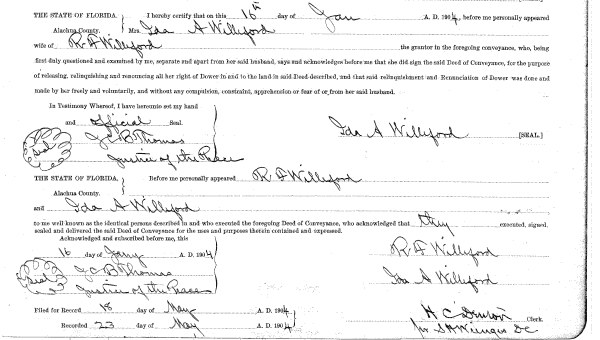 THE STATE OF FLORIDA. } I hereby certify that on this 16th day of Jan A. D. 1904, before me personally appeared
Alachua County. Mrs. Ida A Williford
wife of R F Williford the grantor in the foregoing conveyance, who, being
first duly questioned and examined by me, separate and apart from her said husband, says and acknowledges before me that she did sign the said Deed of Conveyance, for the purpose
of releasing, relinquishing and renouncing all her right of Dower in and to the land in said Deed described, and that said relinquishment and Renunciation of Dower was done and
made by her freely and voluntarily, and without any compulsion, constraint, apprehension or fear of or from her said husband.
In Testimony Whereof, I have hereunto set my hand
and official Seal.
Seal J C B Thomas
Justice of the Peace
Ida A Williford [SEAL.]
THE STATE OF FLORIDA, } Before me personally appeared R F Williford
Alachua County.
and Ida A Williford
to me well-known as the identical persons described in and who executed the foregoing Deed of Conveyance, who acknowledged that they executed, signed,
sealed and delivered the said Deed of Conveyance for the uses and purposes therein contained and expressed.
Acknowledged and subscribed before me, this
16 day of Jany A. D. 1904
Seal J C B Thomas
Justice of the Peace
R F Williford
Ida A Williford
Filed for Record 18 day of May A. D. 1904
Recorded 23 day of May A. D. 1904
H C Denton Clerk.
D C